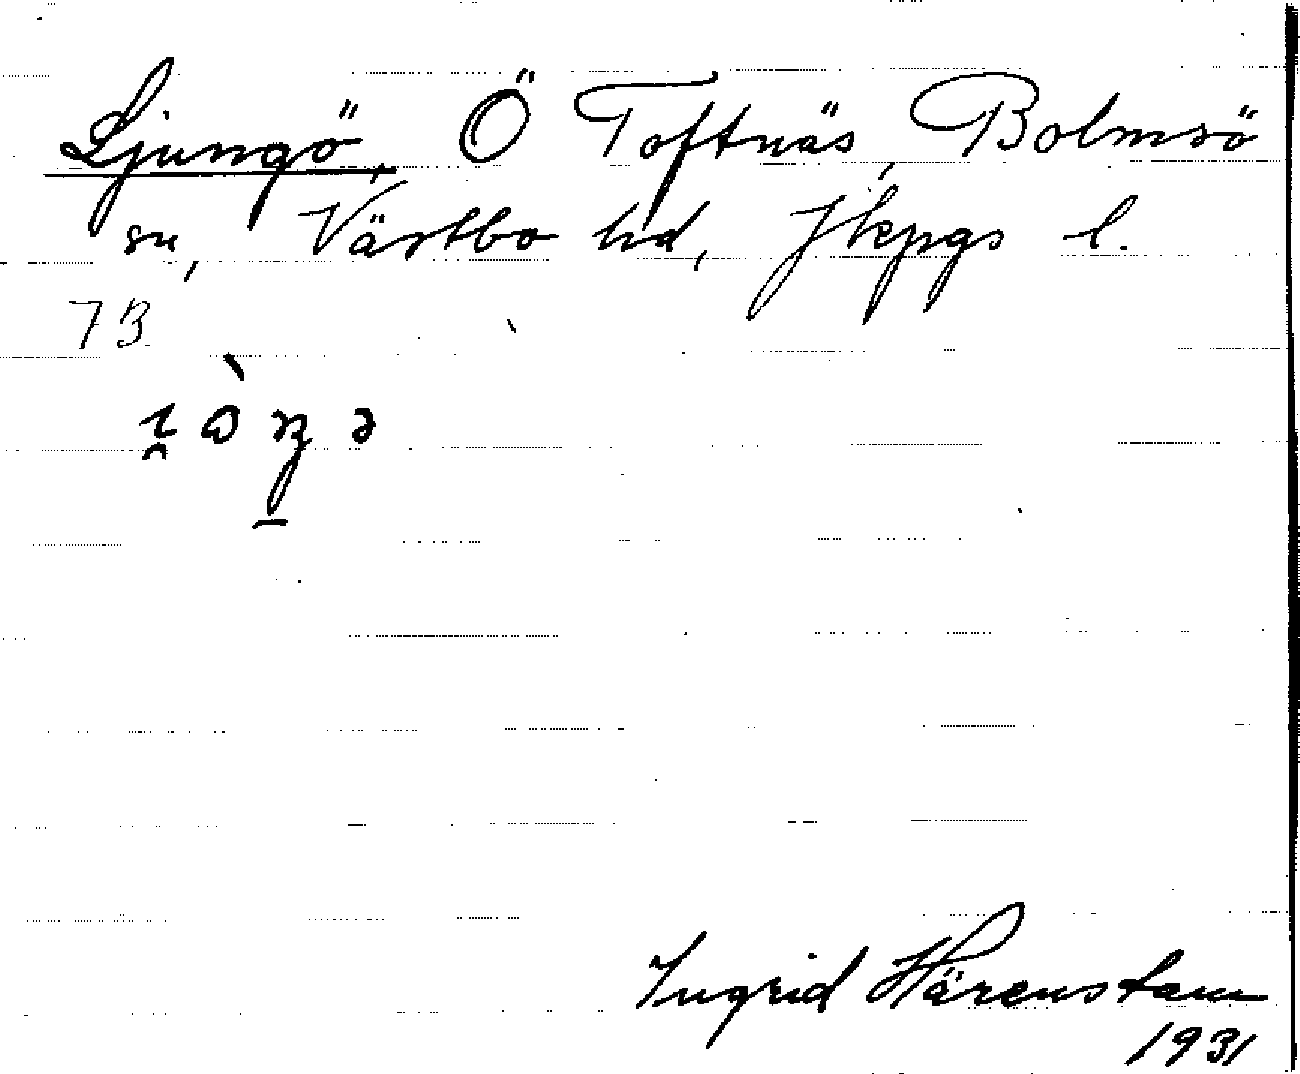 Ljungö, Ö Toftnäs, Bolmsö
sn, Västbo hd, Jkpgs l.
73
Ingrid Härenstam
1931